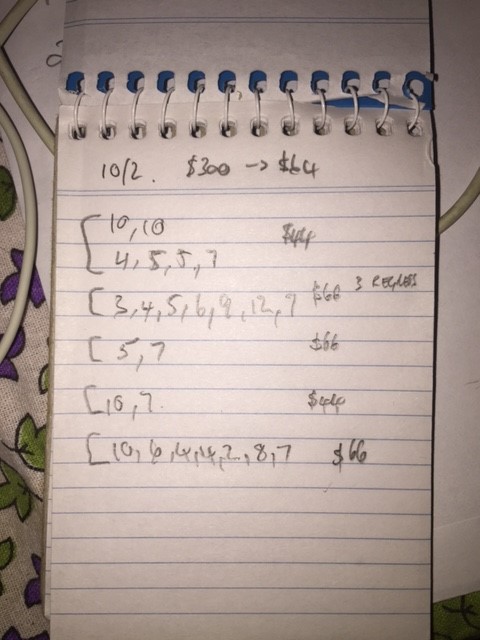 10/2. $300 → $64
10,10 $44
4,5,5,7
3,4,5,6,9,12,7 $66 3
5,7 $66
10,7. $44
10,6,4,4,2,8,7 $66